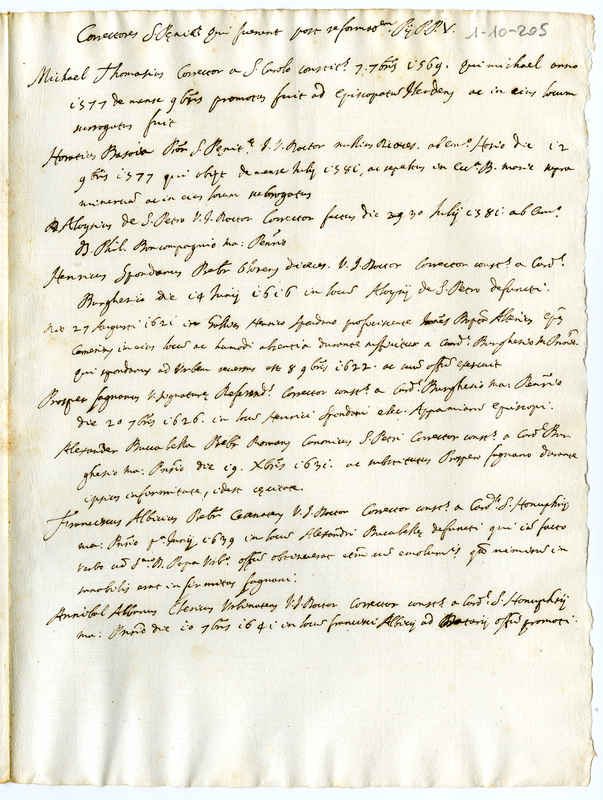 Correctores S. Pęnit.ę qui fuerunt post reformaõem Pij PP. V. 1-10-205
Michael Thomasius Corrector a S. Carolo constit.s 7. 7bris 1569. qui michael anno
1577 de mense 9bris promotus fuit ad episcopatum Ilerdens ac in eius locum
surrogatus fuit
Horatius S. Pęnit.ę V. J. Doctor die 12
9bris 1577 qui obijt de mense Julij 1581, ac sepultus in Ecc.a B. Marie supra
minervam ac in eius locum subrogatus
Aloysius de S. Petro V. J. Doctor Corrector factus die 29 30 Julij 1581 ab Em.o
D. Phil. Boncompagnio ma: Pęnrio
Henricus Spondanus Presbr Oloren dioces. V. J. Doctor Corrector const.s a Card.
Burghesio die 14 Junij 1616 in locum Aloysij de S. Petro defuncti.
Die 27 Augusti 1621 in Gallias Henrico Spondano proficiscente
in eius locum ac hamodi absentia durante substituitur a Card. Burghesio M. Pęnrio
qui spondanus ad Urbem reversus est 8 9bris 1622. ac suum offum exercuit
Prosper fagnanus V. signaturę Referend.s Corrector const.s a Card. Burghesio ma: Pęnrio
die 20 7bris 1626. in locum Henrici Spondani elec. Appamiarum Episcopi.
Alexander Buccabella Presbr Romanus Canonicus S. Petri Corrector const.s a Card. Bur
ghesio ma: Pęnrio die 19. Xbris 1631. ac substitutus Prospero fagnano durante
ipsius infirmitate, idest cęcitate.
Franciscus Albicius Presbr Cęsenatens V. J. Doctor Corrector const.s a Card. S. Honuphrij
ma: Pęnrio p.a Junij 1639 in locum Alexandri Buccabellę defuncti qui de facto
verbo cum S.mo D. Papa Urb.o offum obtinuerat cum
sanabilis erat infirmitas fagnani.
Annibal Albanus Clericus Urbinatens V. J. Doctor Corrector const.s a Card. S. Honuphrij
ma: Pęnrio die 10 7bris 1641 in locum francisci Albicij ad offum promoti.